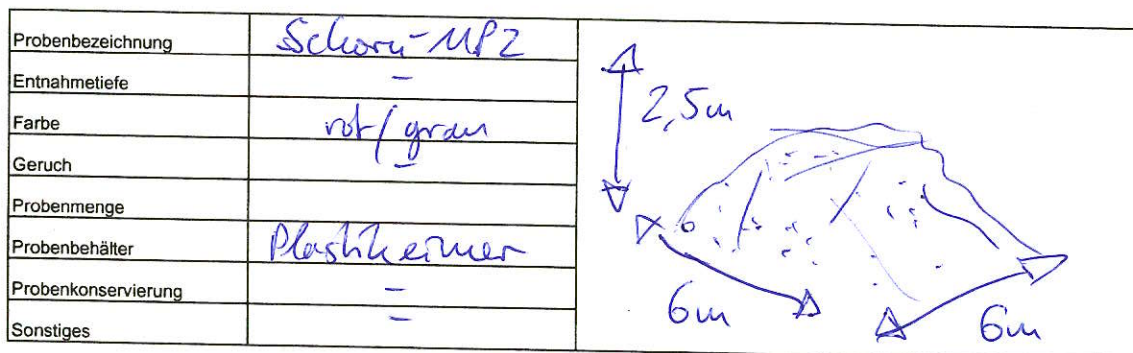 Probenbezeichnung Schorn-MP2
Entnahmetiefe -
Farbe rot/grau
Geruch -
Probenmenge
Probenbehälter Plastikeimer
Probenkonservierung -
Sonstiges -
2,5m
6m 6m